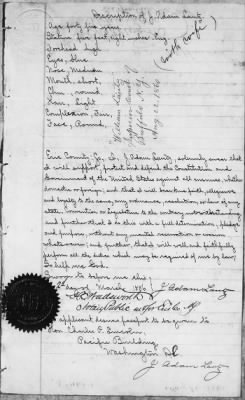 Description of J. Adam Lautz
Age forty five years
Stature five feet, eight inches Eng.
Forehead high
Eyes, blue
Nose, Medium
Mouth, short,
Chin, round,
Hair, Light
Complexion, Fair,
Face, Round,
Erie County, ss. I, J. Adam Lautz, solemnly swear that
I will support, protect and defend the Constitution and
Government of the United States against all enemies, whether
domestic or foreign; and that I will bear true faith, allegiance
and loyalty to the same, any ordinance, resolution or law of any
State, Convention or Legislature to the contrary notwithstanding;
and further that I do this with a full determination, pledge
and purpose, without any mental reservation or evasion
whatsoever; and further that I will well and faithfully
perform all the duties which may be required of me by law;
So help me God.
Sworn to before me this
day of March 1886
J Adam Lautz
Wadsworth
Notary Public in &for Erie Co. NY
applicant desires passport to be given to
Hon. Charles P. Lincoln,
Pacific Building
Washington DC
J Adam Lautz